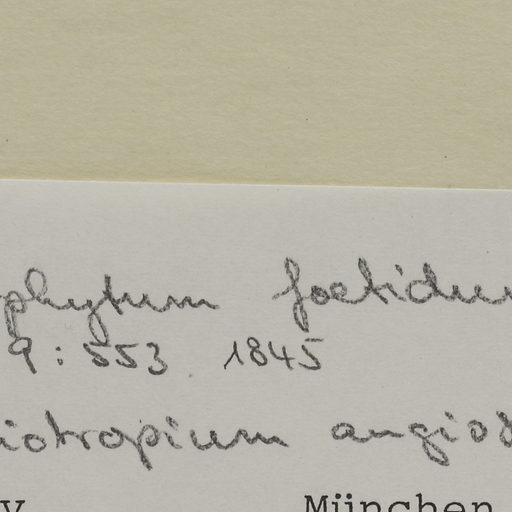 phytum foetidum
9 : 553 1845
iotropium angios
v München